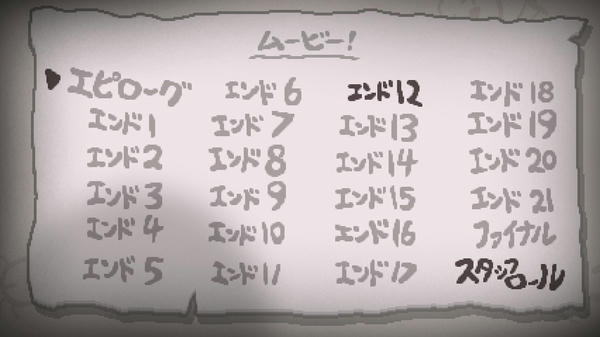 ムービー!
エピローグ エンド6 エンド12 エンド18
エンド1 エンド7 エンド13 エンド19
エンド2 エンド8 エンド14 エンド20
エンド3 エンド9 エンド15 エンド21
エンド4 エンド10 エンド16 ファイナル
エンド5 エンド11 エンド17 スタッフロール